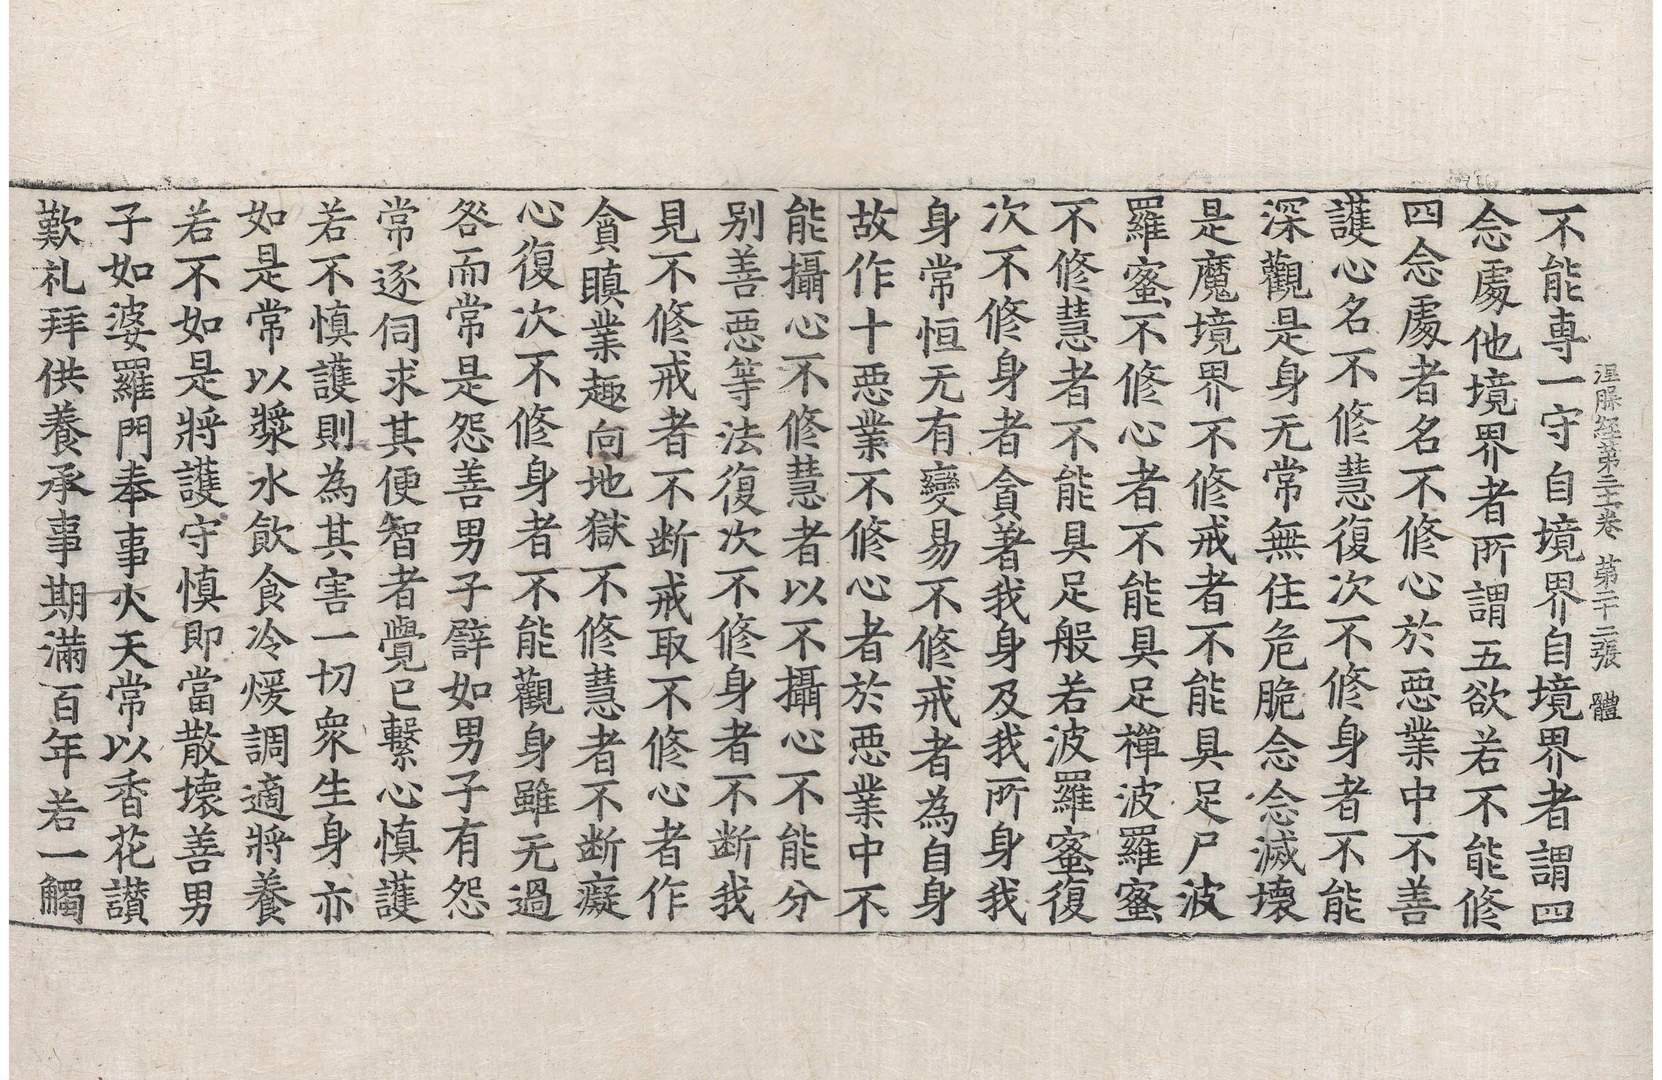 涅槃経第三十一卷 第二十二張 體
不能專一守自境界自境界者謂四
念處他境界者所謂五欲若不能修
四念處者名不修心於惡業中不善
護心名不修慧復次不修身者不能
深觀是身无常無住危脆念念滅壞
是魔境界不修戒者不能具足尸波
羅蜜不修心者不能具足禪波羅蜜
不修慧者不能具足般若波羅蜜復
次不修身者貪著我身及我所身我
身常恒无有變易不修戒者為自身
故作十惡業不修心者於惡業中不
能攝心不修慧者以不攝心不能分
別善惡等法復次不修身者不断我
見不修戒者不断戒取不修心者作
貪瞋業趣向地獄不修慧者不断癡
心復次不修身者不能觀身雖无過
咎而常是怨善男子譬如男子有怨
常逐伺求其便智者覺已繫心慎護
若不慎護則為其害一切衆生身亦
如是常以漿水飲食冷煖調適將養
若不如是將護守慎即當散壞善男
子如婆羅門奉事火天常以香花讃
歎礼拜供養承事期滿百年若一觸